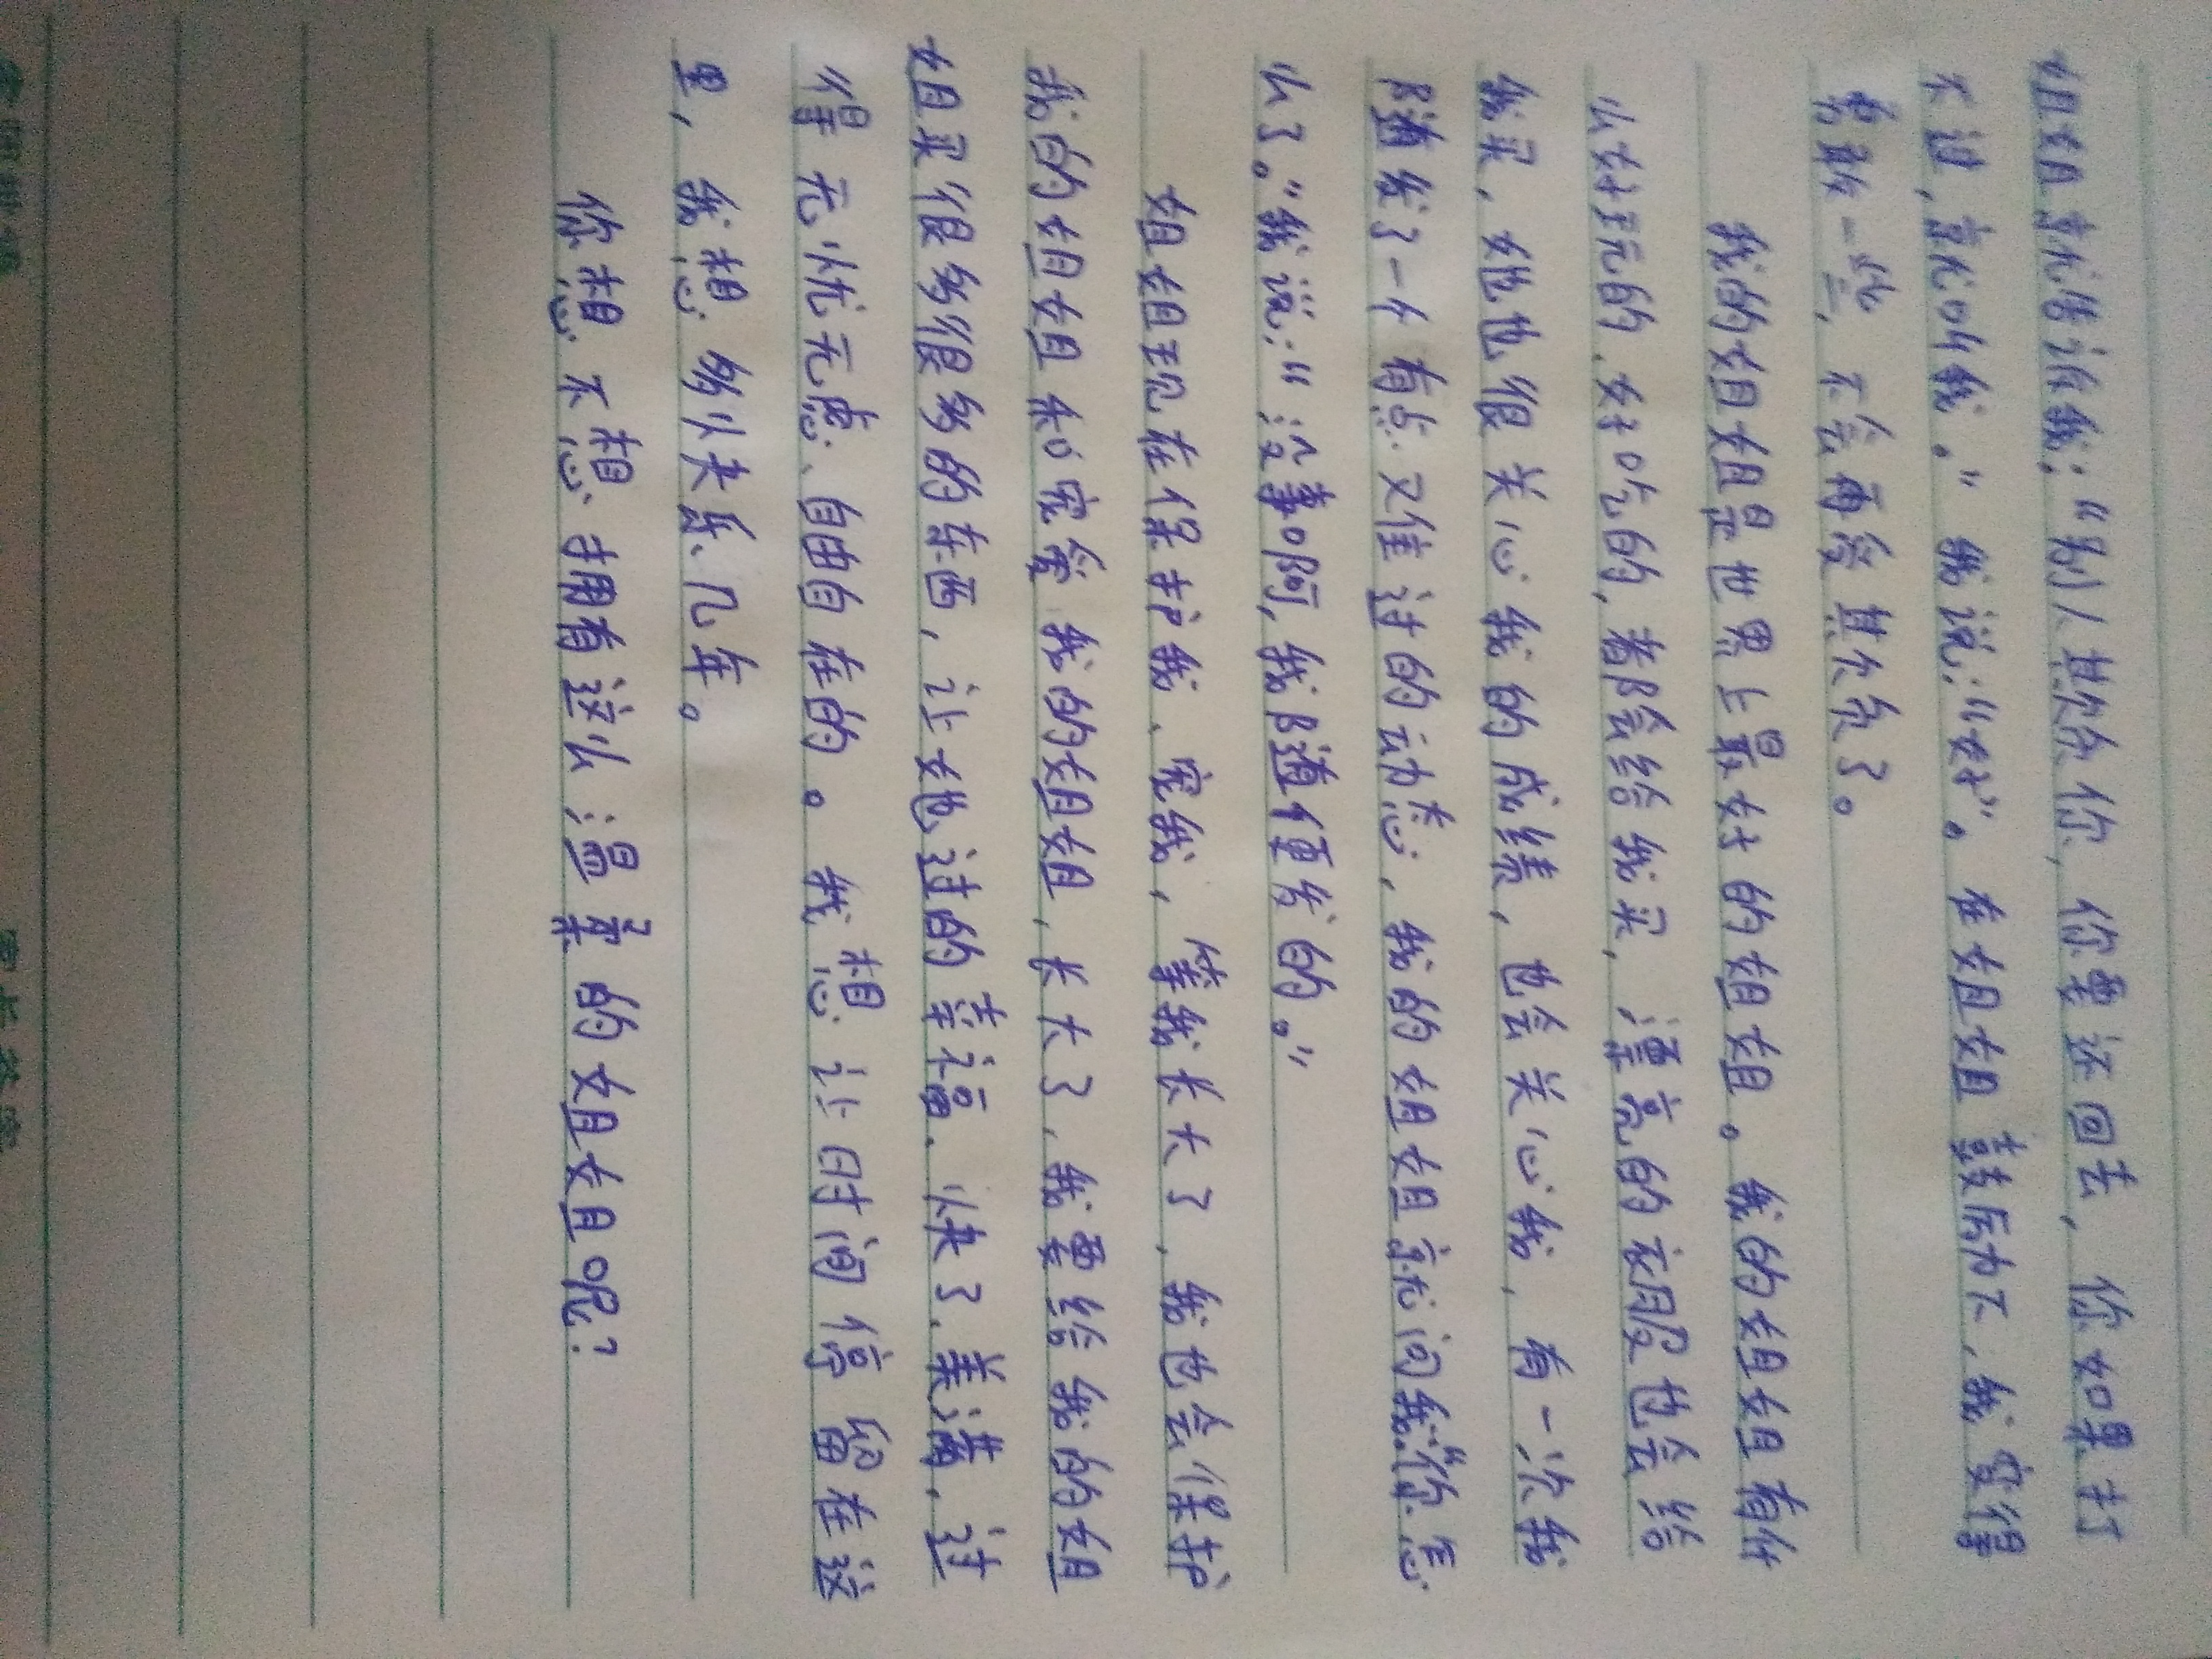 姐姐就告诉我:“别人欺负你,你要还回去,你如果打
不过,就叫我。”我说:“好”。在姐姐鼓励下,我变得
勇敢一些,不会再受欺负了。
我的姐姐是世界上最好的姐姐。我的姐姐有什
么好玩的、好吃的,都会给我买,漂亮的衣服也会给
我买,她也很关心我的成绩,也会关心我,有一次我
随发了一个有点难过的动态,我的姐姐就问我:“你怎
么了。”我说:“没事啊,我随便发的。”
姐姐现在保护我、宠我,等我长大了,我也会保护
我的姐姐和宠爱我的姐姐,长大了,我要给我的姐
姐买很多很多的东西,让她过的幸福、快了、美满,过
得无忧无虑、自由自在的。我想让时间停留在这
里,我想多么快乐几年。
你想不想拥有这么温柔的姐姐呢?